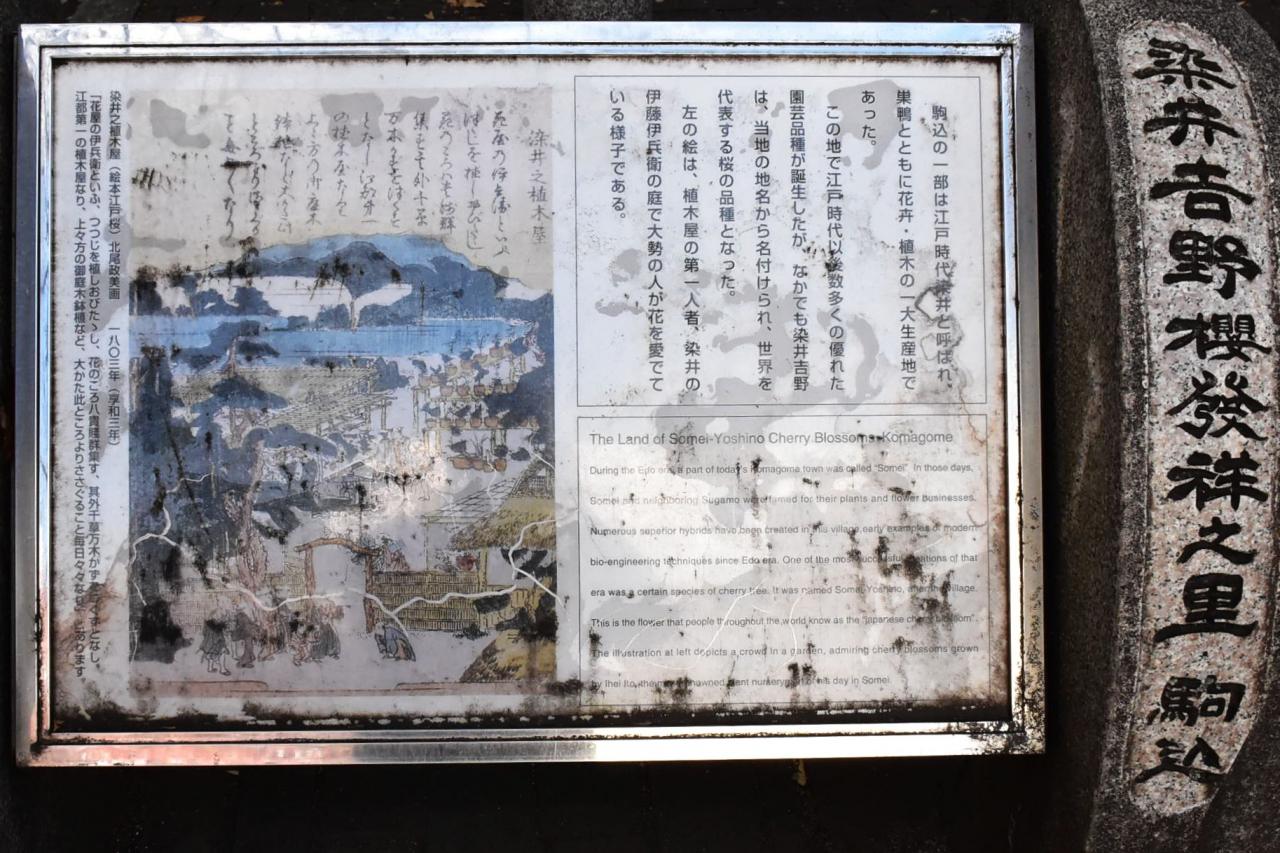 染井吉野櫻發祥之里 駒込
駒込の一部は江戸時代染井と呼ばれ、
巣鴨とともに花卉・植木の一大生産地で
あった。
この地で江戸時代以後数多くの優れた
園芸品種が誕生したが、なかでも染井吉野
は、当地の地名から名付けられ、世界を
代表する桜の品種となった。
左の絵は、植木屋の第一人者、染井の
伊藤伊兵衛の庭で大勢の人が花を愛でて
いる様子である。
The Land of Somei-Yoshino Cherry Blossoms-Komagome
During the Edo era, a part of today's Komagome town was called "Somei" In those days,
Somei and neighboring Sugamo were famed for their plants and flower businesses.
Numerous superior hybrids have been created in this village,early examples of modern
bio-engineering techniques since Edo era. One of the most successful creations of that
era was a certain species of cherry tree. It was named Somei-Yoshino, after the village.
This is the flower that people throughout the world know as the "japanese cherry blossom".
The illustration at left depicts a crowd in a garden, admiring cherry blossoms grown
by Ihei Ito, the most renowned plant nurseryman of his day in Somei.
染井之植木屋
染井之植木屋（絵本江戸桜）北尾政美画 一八〇三年（享和三年）
「花屋の伊兵衛といふ、つつじを植しおびたゝし、花のころ八貴賤群集す、其外千草万木かずをつくすとなし、
江都第一の植木屋なり、上々方の御庭木鉢植など、大かた此ところよりささぐること毎日々々なり」とあります。